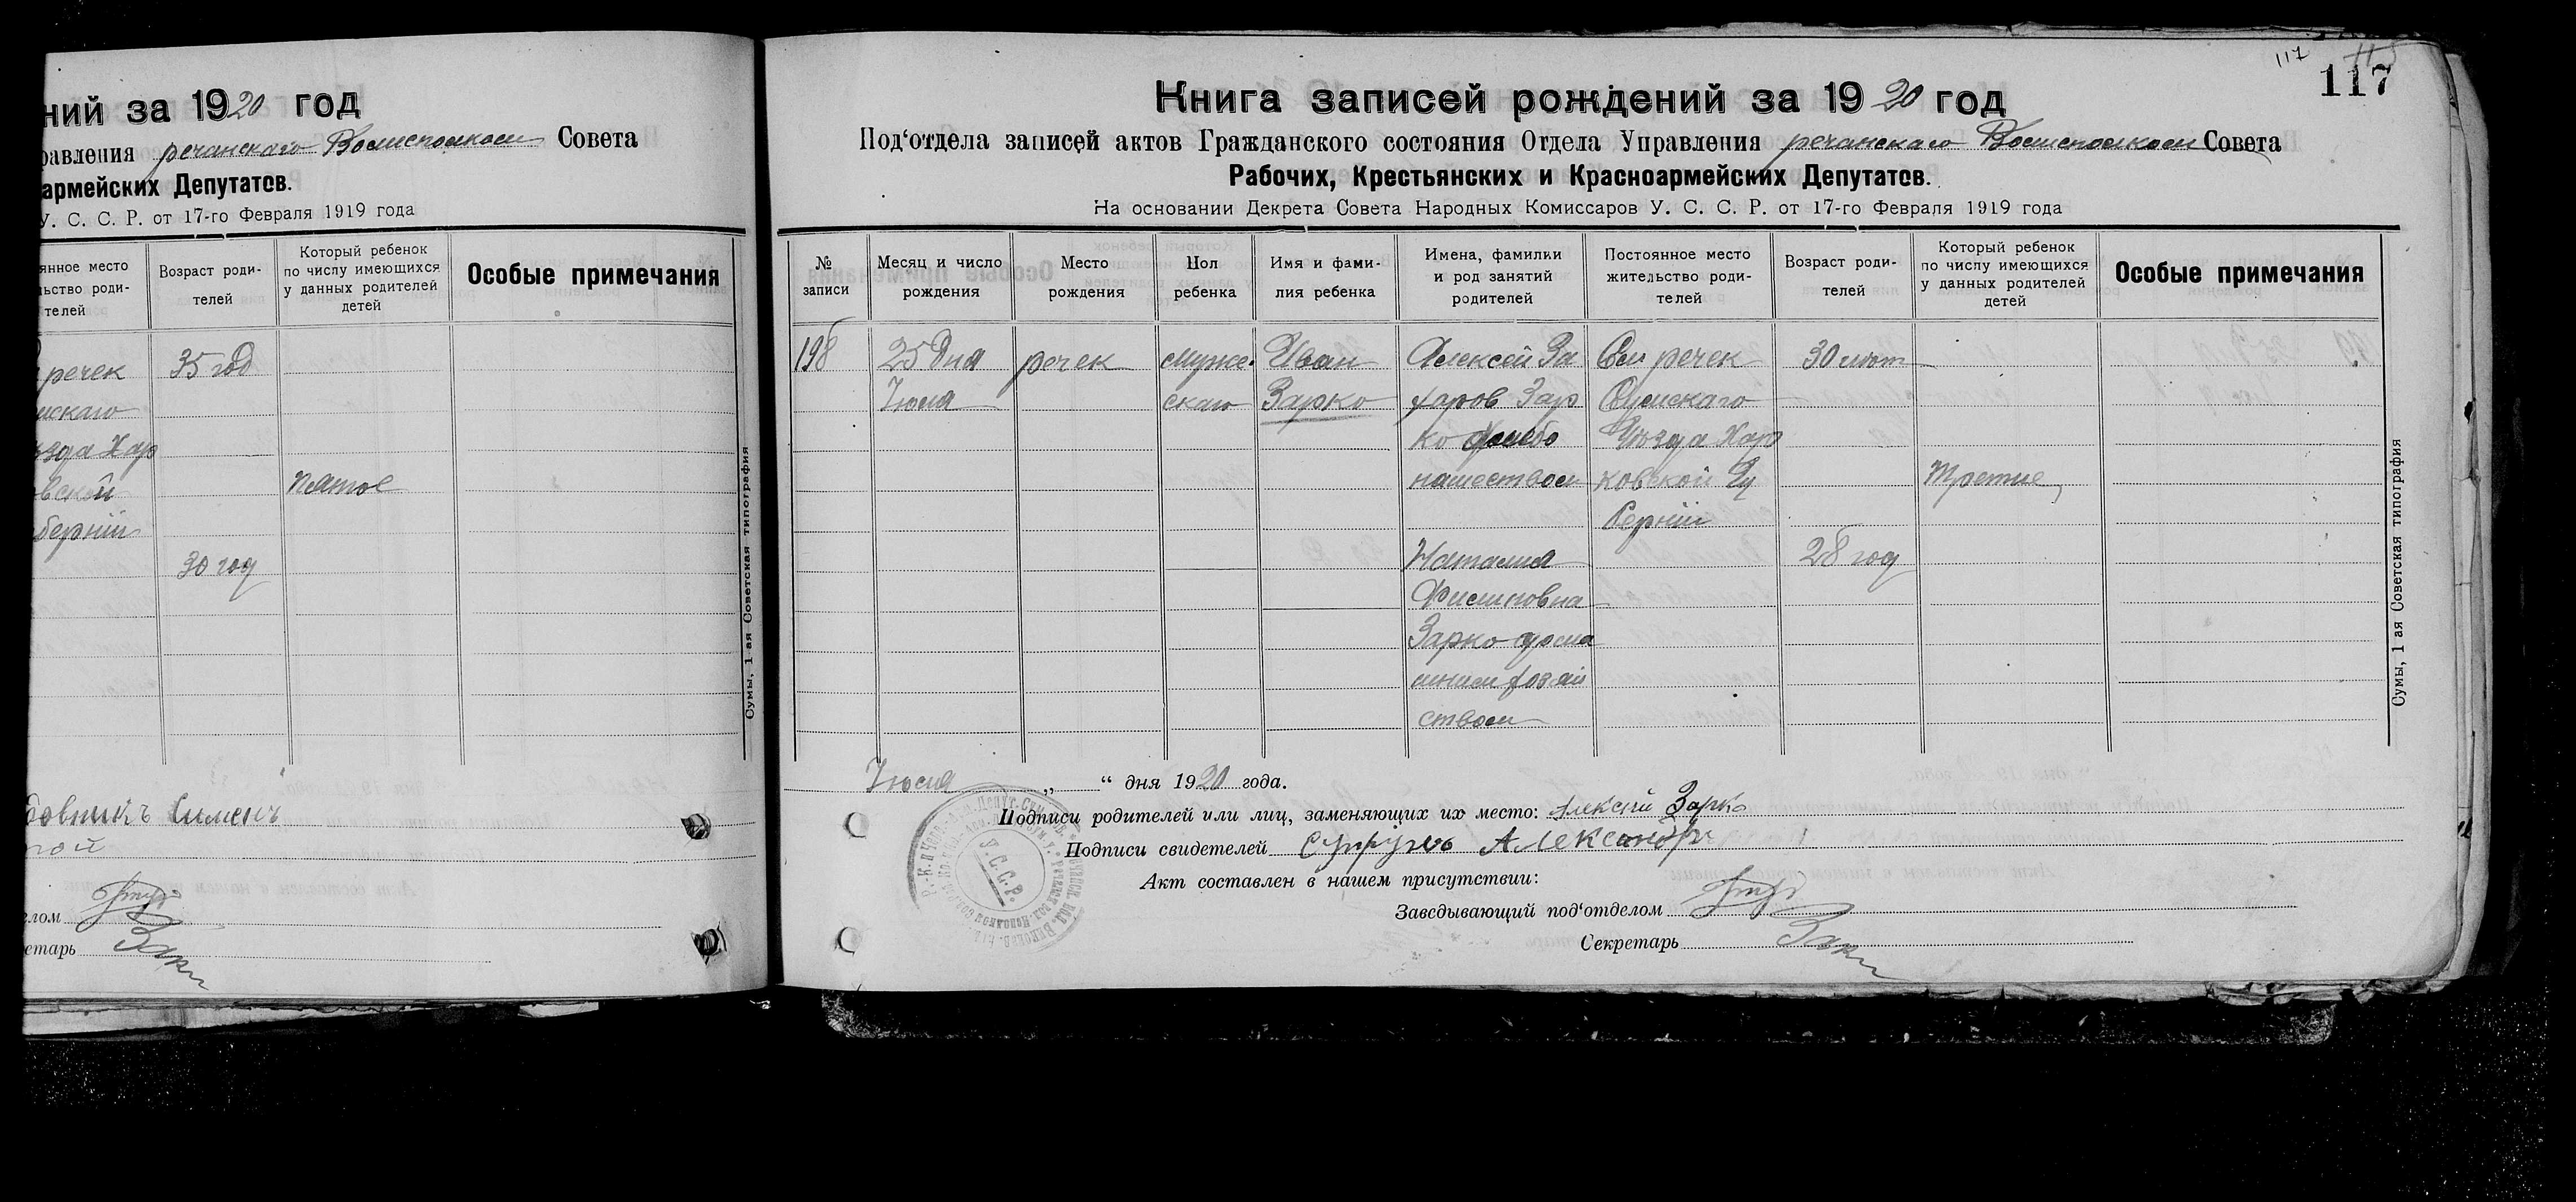 ний за 1920 год
равления речанскаго Волисполком Совета
армейских Депутатов.
У. С. С. Р. от 17-го Февраля 1919 года
янное место
льство роди-
телей
Возраст роди-
телей
Который ребенок
по числу имеющихся
у данных родителей
детей
Особые примечания
речек
35 год
мскаго
ъзда Хар
овской
пятое
берніи
30 год
Сумы, 1-ая Советская типография
довникъ Сименъ
лом
етарь
117
117
Книга записей рождений за 1920 год
Под‘отдела записей актов Гражданского состояния Отдела Управления речанскаго Волисполком Совета
Рабочих, Крестьянских и Красноармейских Депутатов.
На основании Декрета Совета Народных Комиссаров У. С. С. Р. от 17-го Февраля 1919 года
№
записи
Месяц и число
рождения
Место
рождения
Пол
ребенка
Имя и фами-
лия ребенка
Имена, фамилии
и род занятий
родителей
Постоянное место
жительство роди-
телей
Возраст роди-
телей
Который ребенок
по числу имеющихся
у данных родителей
детей
Особые примечания
198
25 Дня
Июля
речек
муже-
скаго
Иван
Зарко
Алексей За
харов Зар
ко хлебо
пашеством
Наталия
Филиповна
Зарко дома
шним хозяй
ством
Сел речек
Сумскаго
Уъзда Хар
ковской Гу
берніи
30 лѣт
28 год
Третие
Сумы, 1 ая Советская типография
Июля „ “ дня 1920 года.
Подписи родителей или лиц, заменяющих их место: Алексѣй Зарко
Подписи свидетелей Александръ
Акт составлен в нашем присутствии:
Заведывающий под‘отделом
Секретарь
У.С.С.Р.